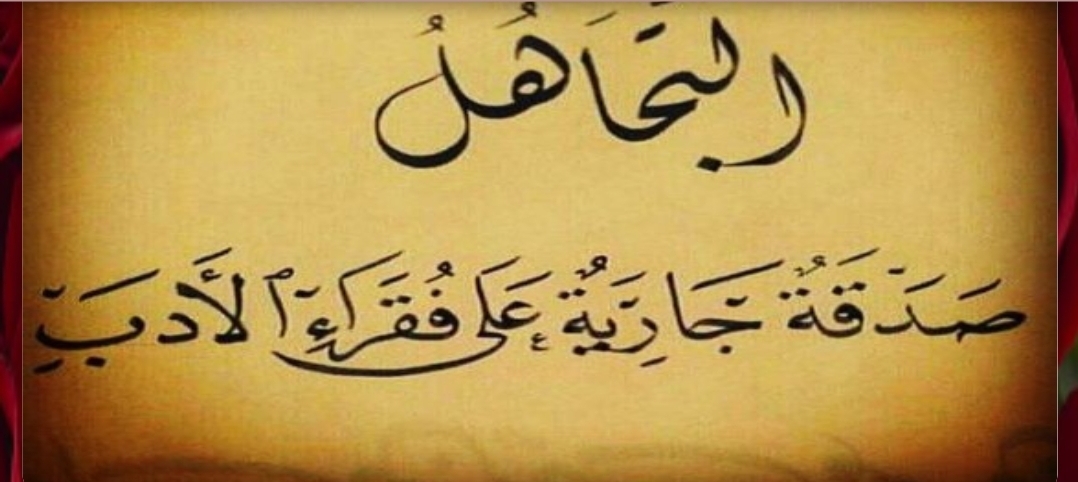 التجَاهُلُ
صَدَقَةٌ جَارِيَةٌ عَلَى فُقَرَاءِ ٱلأَدبَِ